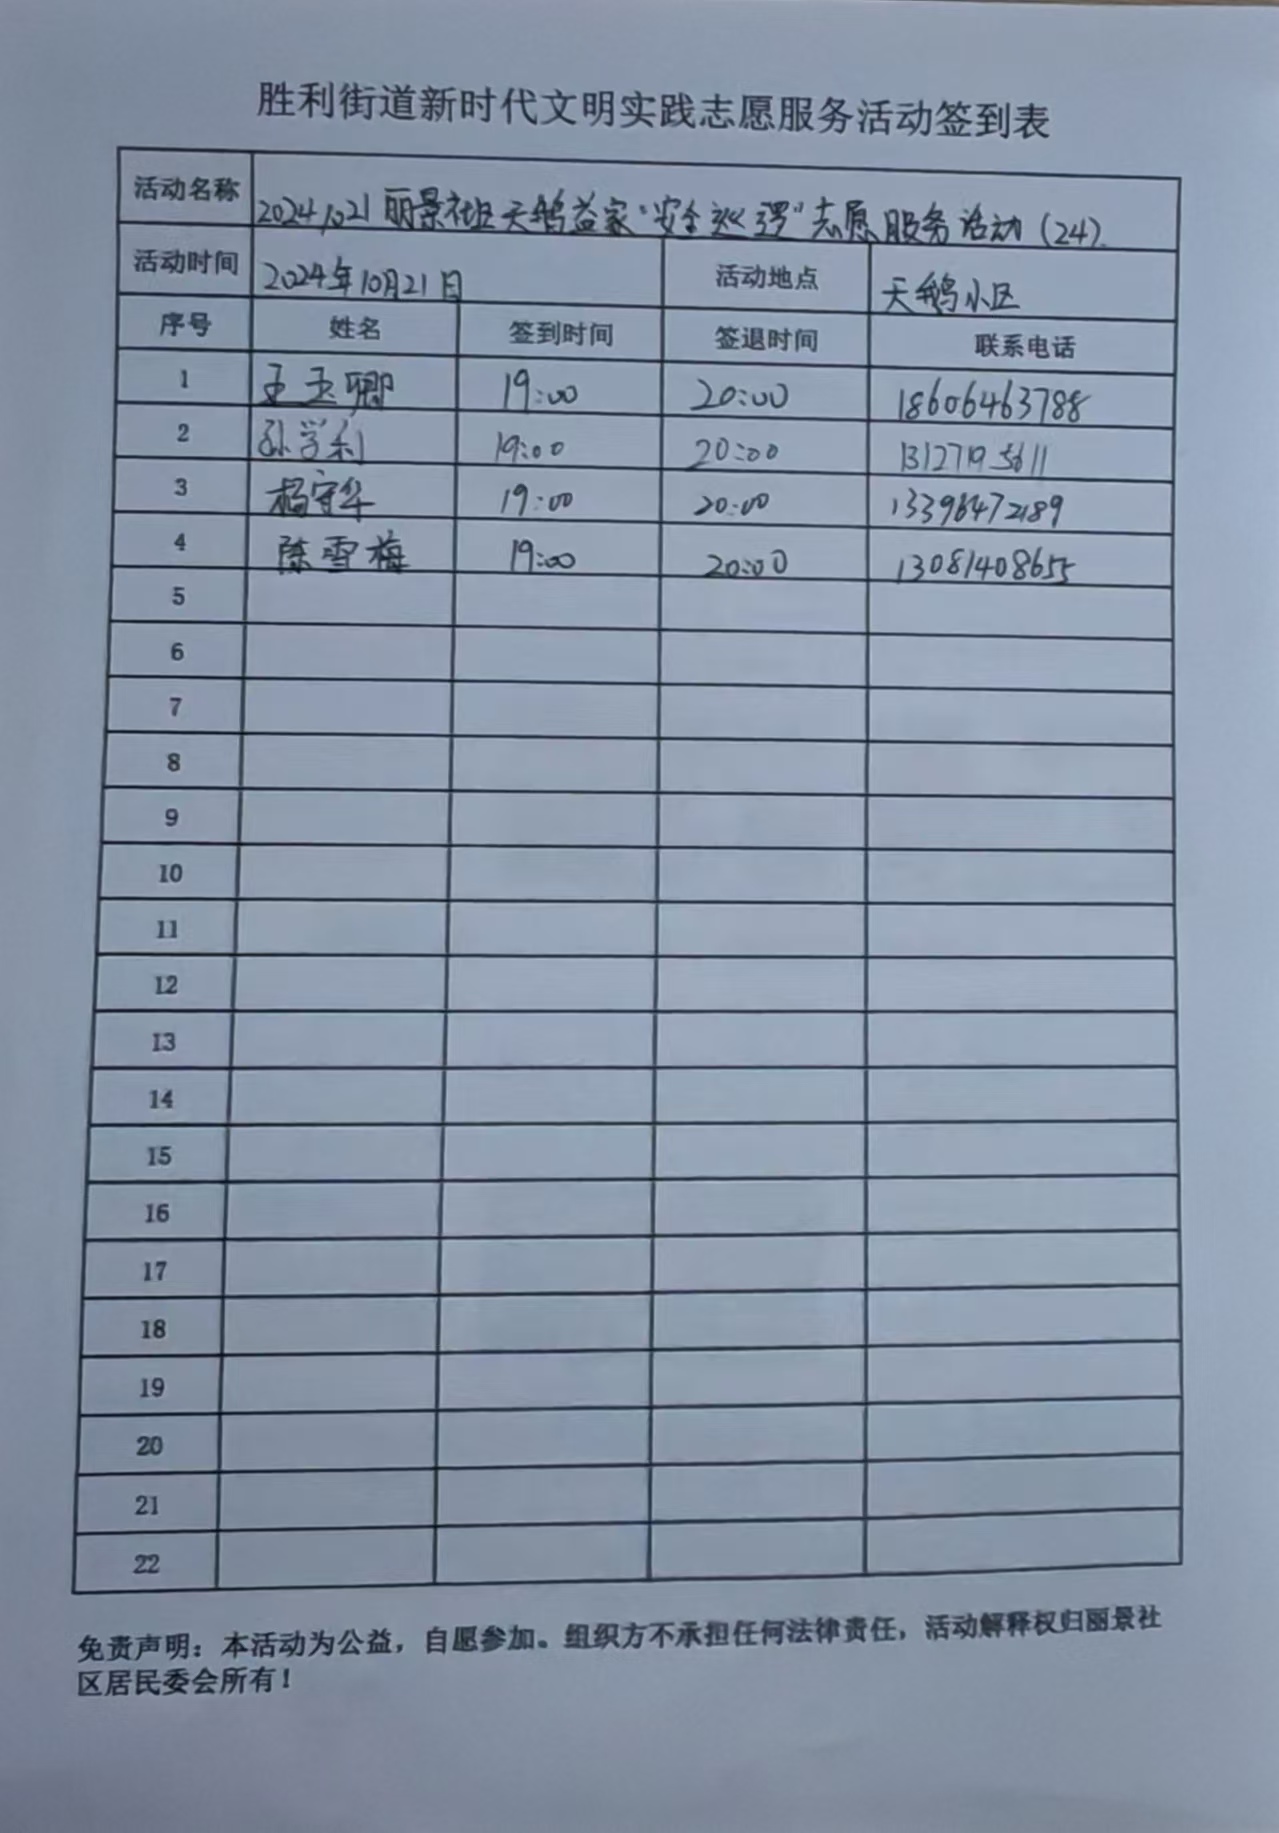 胜利街道新时代文明实践志愿服务活动签到表
活动名称 20241021丽景社区天鹅益家“安全巡逻”志愿服务活动(24)
活动时间 2024年10月21日 活动地点 天鹅小区
序号 姓名 签到时间 签退时间 联系电话
1 王玉卿 19:00 20:00 18606463788
2 孙学利 19:00 20:00 13127195611
3 杨守华 19:00 20:00 13396472189
4 陈雪梅 19:00 20:00 13081408655
5
6
7
8
9
10
11
12
13
14
15
16
17
18
19
20
21
22
免责声明：本活动为公益，自愿参加。组织方不承担任何法律责任，活动解释权归丽景社
区居民委会所有！